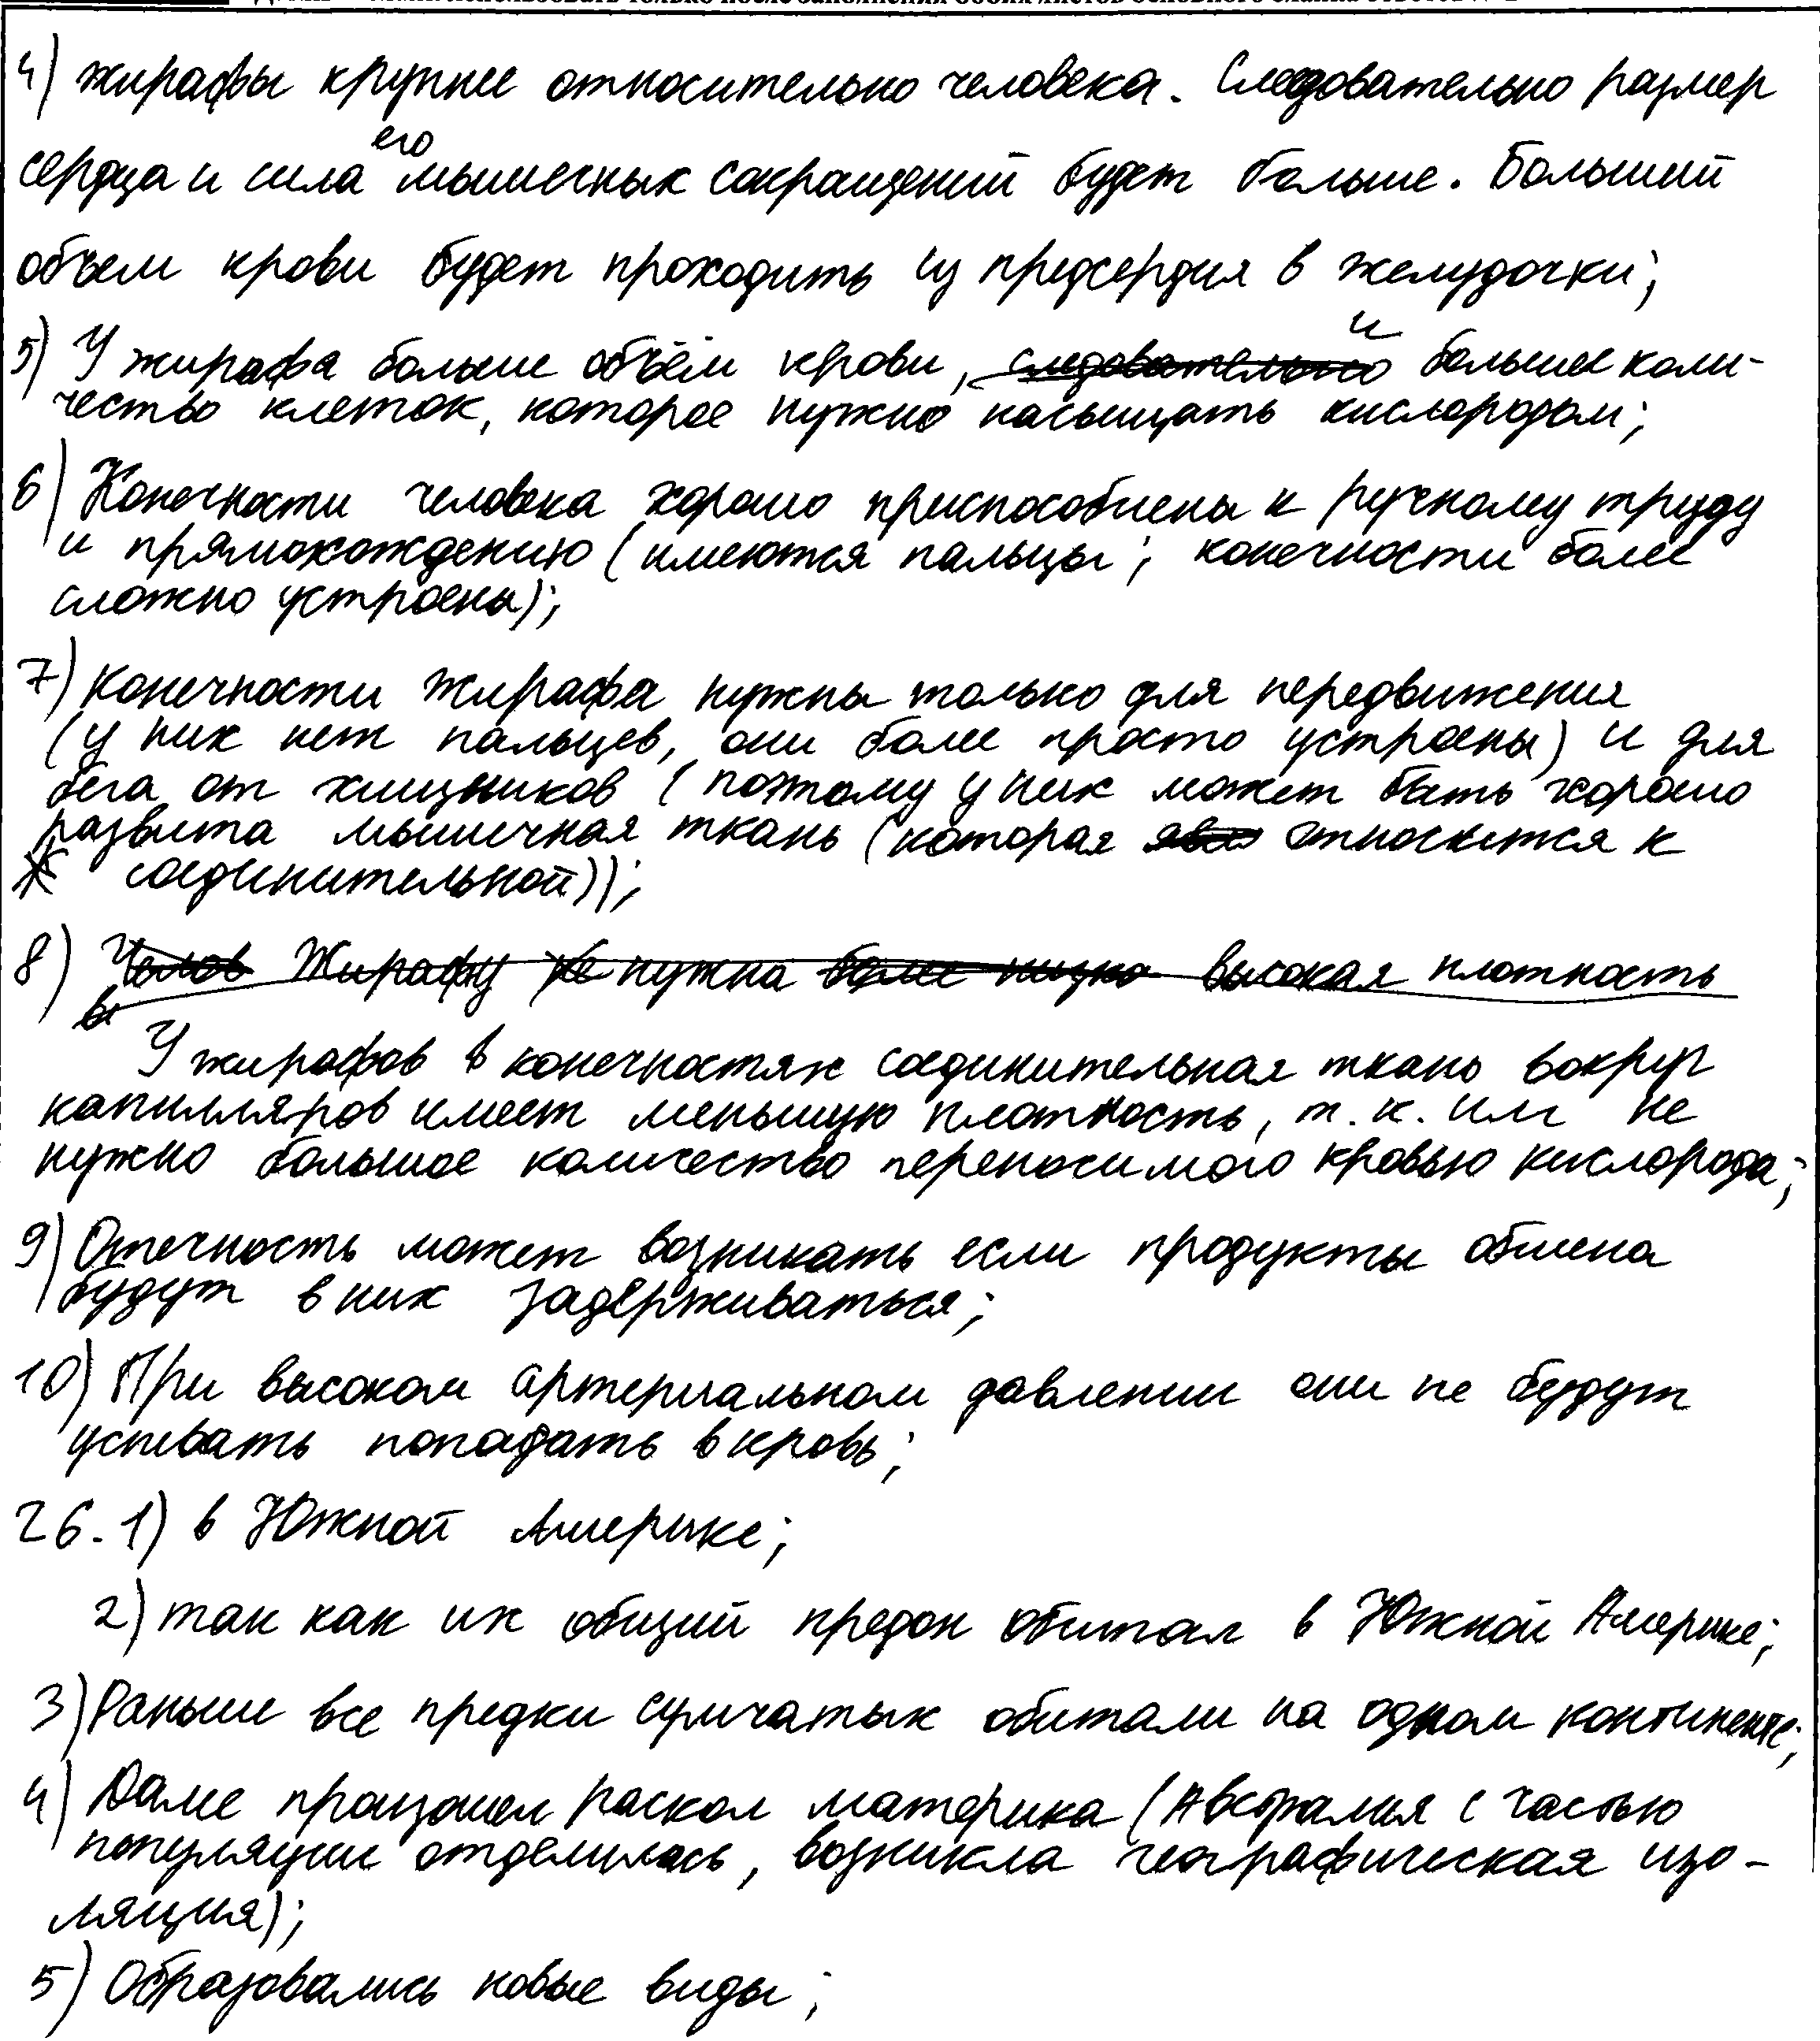 4) жирафы крупнее относительно человека. Следовательно размер
сердца и сила его мышечных сокращений будет больше. Больший
объем крови будет проходить из предсердия в желудочки;
5) У жирафа больше объём крови, следовательно и большее коли-
чество клеток, которое нужно насыщать кислородом;
6) Конечности человека хорошо приспособлены к ручному труду
и прямохождению (имеются пальцы; конечности более
сложно устроены);
7) Конечности жирафа нужны только для передвижения
(у них нет пальцев, они более просто устроены) и для
бега от хищников (поэтому у них может быть хорошо
развита мышечная ткань (которая явл относится к
соединительной));
8) Челов Жирафу не нужна более низко высокая плотность
У жирафов в конечностях соединительная ткань вокруг
капилляров имеет меньшую плотность, т.к. им не
нужно большое количество переносимого кровью кислорода;
9) Отечность может возникать если продукты обмена
будут в них задерживаться;
10) При высоком артериальном давлении они не будут
успевать попадать в кровь;
26. 1) в Южной Америке;
2) так как их общий предок обитал в Южной Америке;
3) Раньше все предки сумчатых обитали на одном континенте;
4) Далее произошел раскол материка (Австралия с частью
популяции отделилась, возникла географическая изо-
ляция);
5) Образовались новые виды;